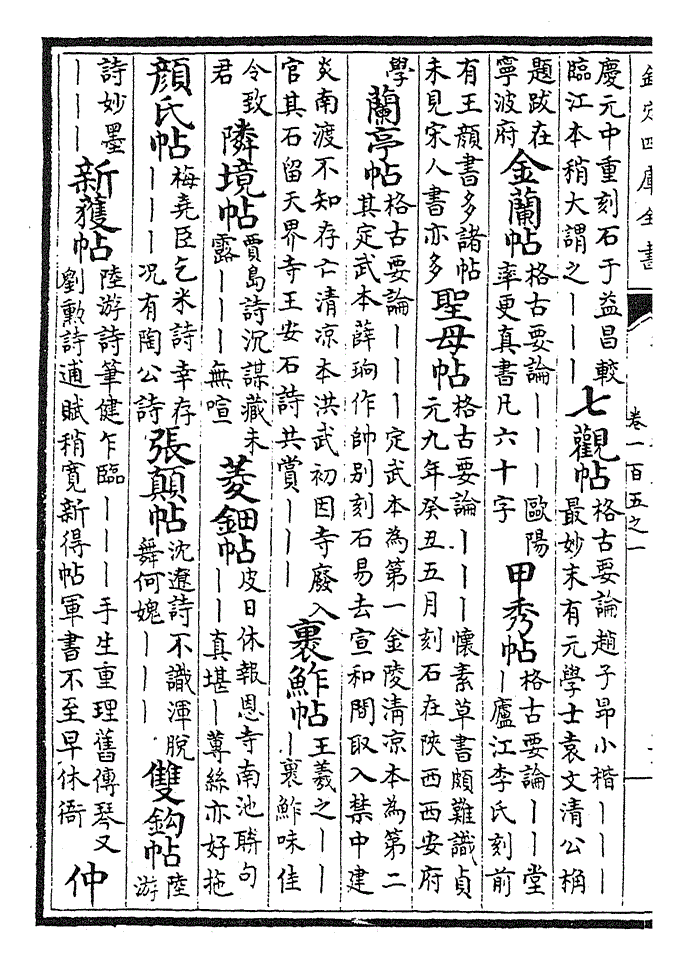 欽定四庫全書
卷一百五之一
慶元中重刻石于益昌較
臨江本稍大謂之｜｜｜
七觀帖
格古要論趙子昂小楷｜｜｜
最妙末有元學士袁文清公桷
題跋在
寧波府
金蘭帖
格古要論｜｜｜歐陽
率更真書凡六十字
甲秀帖
格古要論｜｜堂
｜廬江李氏刻前
有王顔書多諸帖
未見宋人書亦多
聖母帖
格古要論｜｜｜懷素草書頗難識貞
元九年癸丑五月刻石在陜西西安府
學
蘭亭帖
格古要論｜｜｜定武本為第一金陵清凉本為第二
其定武本薛珦作帥別刻石易去宣和間取入禁中建
炎南渡不知存亡清凉本洪武初因寺廢入
官其石留天界寺王安石詩共賞｜｜｜
裹鮓帖
王羲之｜｜
｜裹鮓味佳
令致
君
隣境帖
賈島詩沉謀藏未
露｜｜｜無喧
菱鈿帖
皮日休報恩寺南池聨句
｜｜真堪｜蓴絲亦好拖
顔氏帖
梅堯臣乞米詩幸存
｜｜｜况有陶公詩
張顛帖
沈遼詩不識渾脫
舞何媿｜｜｜
雙鈎帖
陸
游
詩妙墨
｜｜｜
新獲帖
陸游詩筆健乍臨｜｜｜手生重理舊傳琴又
劉勲詩逋賦稍寛新得帖軍書不至早休衙
仲